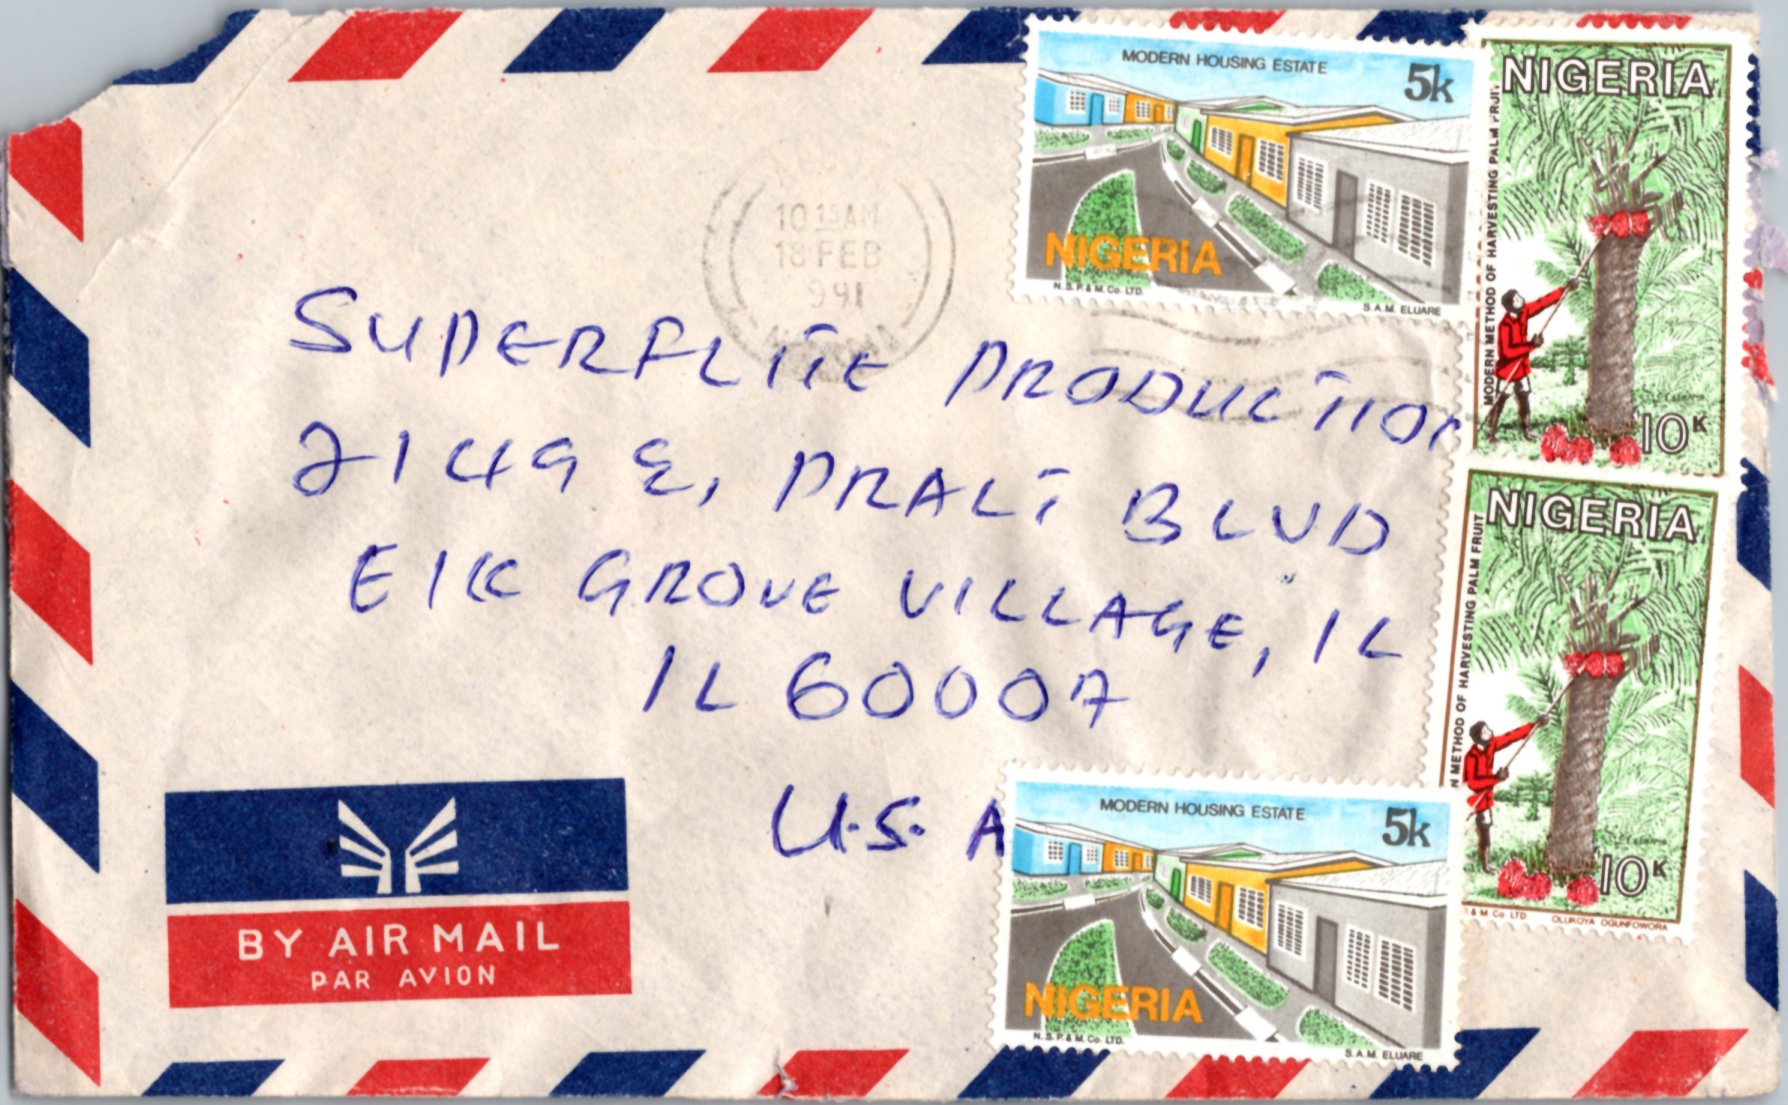 10 15 AM
18 FEB
991
MODERN HOUSING ESTATE
5k
NIGERIA
N.S.P. & M. Co. LTD.
S.A.M. ELUARE
NIGERIA
MODERN METHOD OF HARVESTING PALM FRUIT
10K
SUPERFLITE PRODUCTION
2149 E, PRALT BLVD
ElK GROVE VILLAGE, IL
IL 60007
U.S. A
NIGERIA
N METHOD OF HARVESTING PALM FRUIT
10K
& M Co LTD OLUKOYA OGUNFOWORA
MODERN HOUSING ESTATE
5k
NIGERIA
N.S.P. & M. Co. LTD.
S.A.M. ELUARE
BY AIR MAIL
PAR AVION